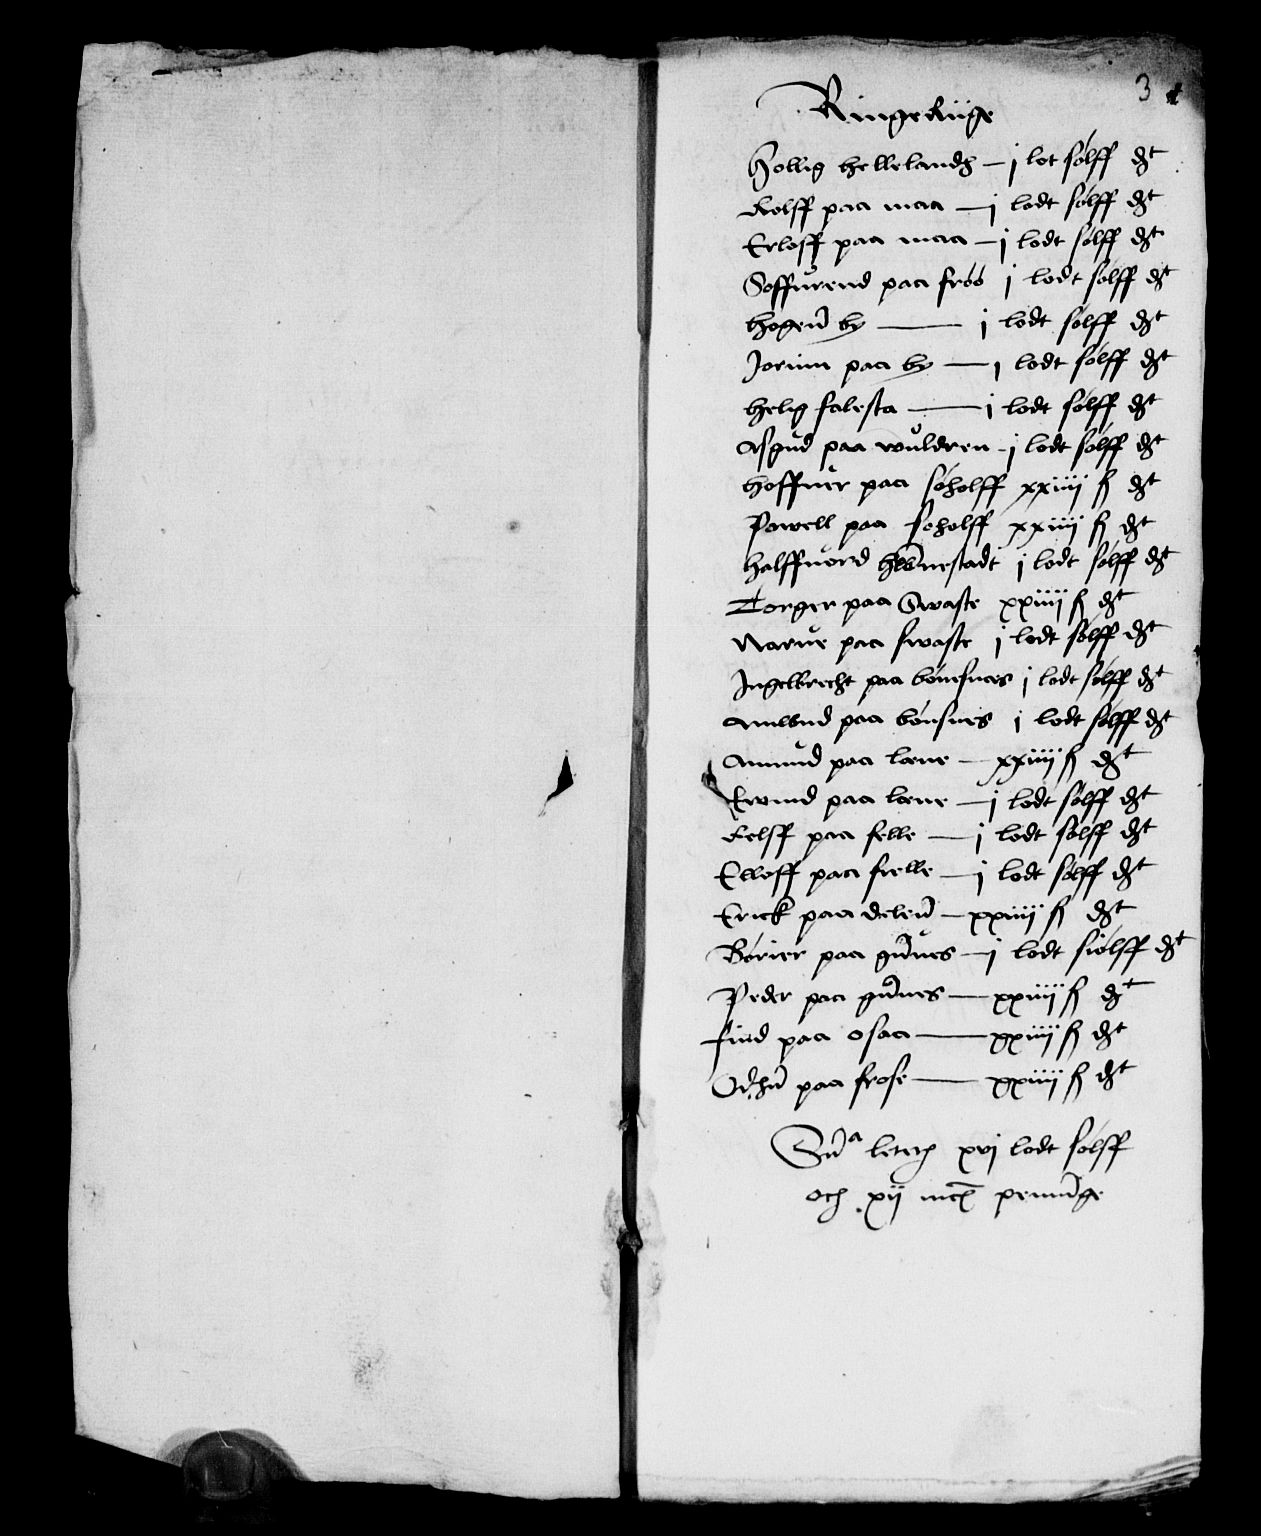 3
Ringeriige
Hollig hellelandh — j lot sølff dt
Rolff paa maa — j lodt sølff dt
Erloff paa maa — j lodt sølff dt
Soffurend paa fróó j lodt sølff dt
hogen̄ by — j lodt sølff dt
Jorinn paa by — j lodt sølff dt
helig falesta — j lodt sølff dt
Asgud paa wuldren — j lodt sølff dt
hoffuer paa søholff xxiiij ß dt
Powell paa soholff xxiiij ß dt
halffuord stadt j lodt sølff dt
Torger paa Swaste xxiiij ß dt
Narue paa swaste j lodt sølff dt
Ingelbrecht paa bønesnees j lodt sølff dt
Amund paa bónsnes j lodt sølff dt
Amund paa lœne — xxiiij ß dt
Ewind paa lœne — j lodt sølff dt
Rolff paa felle — j lodt sølff dt
Elloff paa frelle — j lodt sølff dt
Erick paa delen̄ — xxiiij ß dt
Børier paa gūnnes — j lodt siølff dt
Peder paa gūnnes — xxiiij ß dt
find paa osaa — xxiiij ß dt
paa frose — xxiiij ß dt
Sūa xvj lodt sølff
och xij mck pennīge